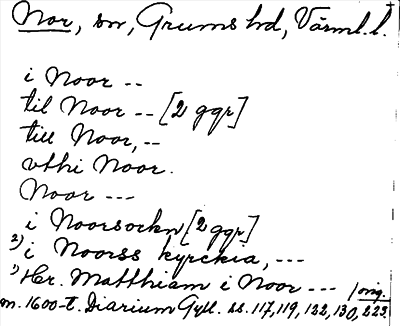 Nor, sn, Grums hd, Värml. l.
i Noor --
til Noor -- [2 ggr]
till Noor, --
vthi Noor.
Noor ---
i Noorsockn [2 ggr]
2) i Noorss kyrckia, ---
1) Hr. Matthiam i Noor --- / orig.
m. 1600-t. Diarium Gyll. ss. 117, 119, 122, 130, 223.